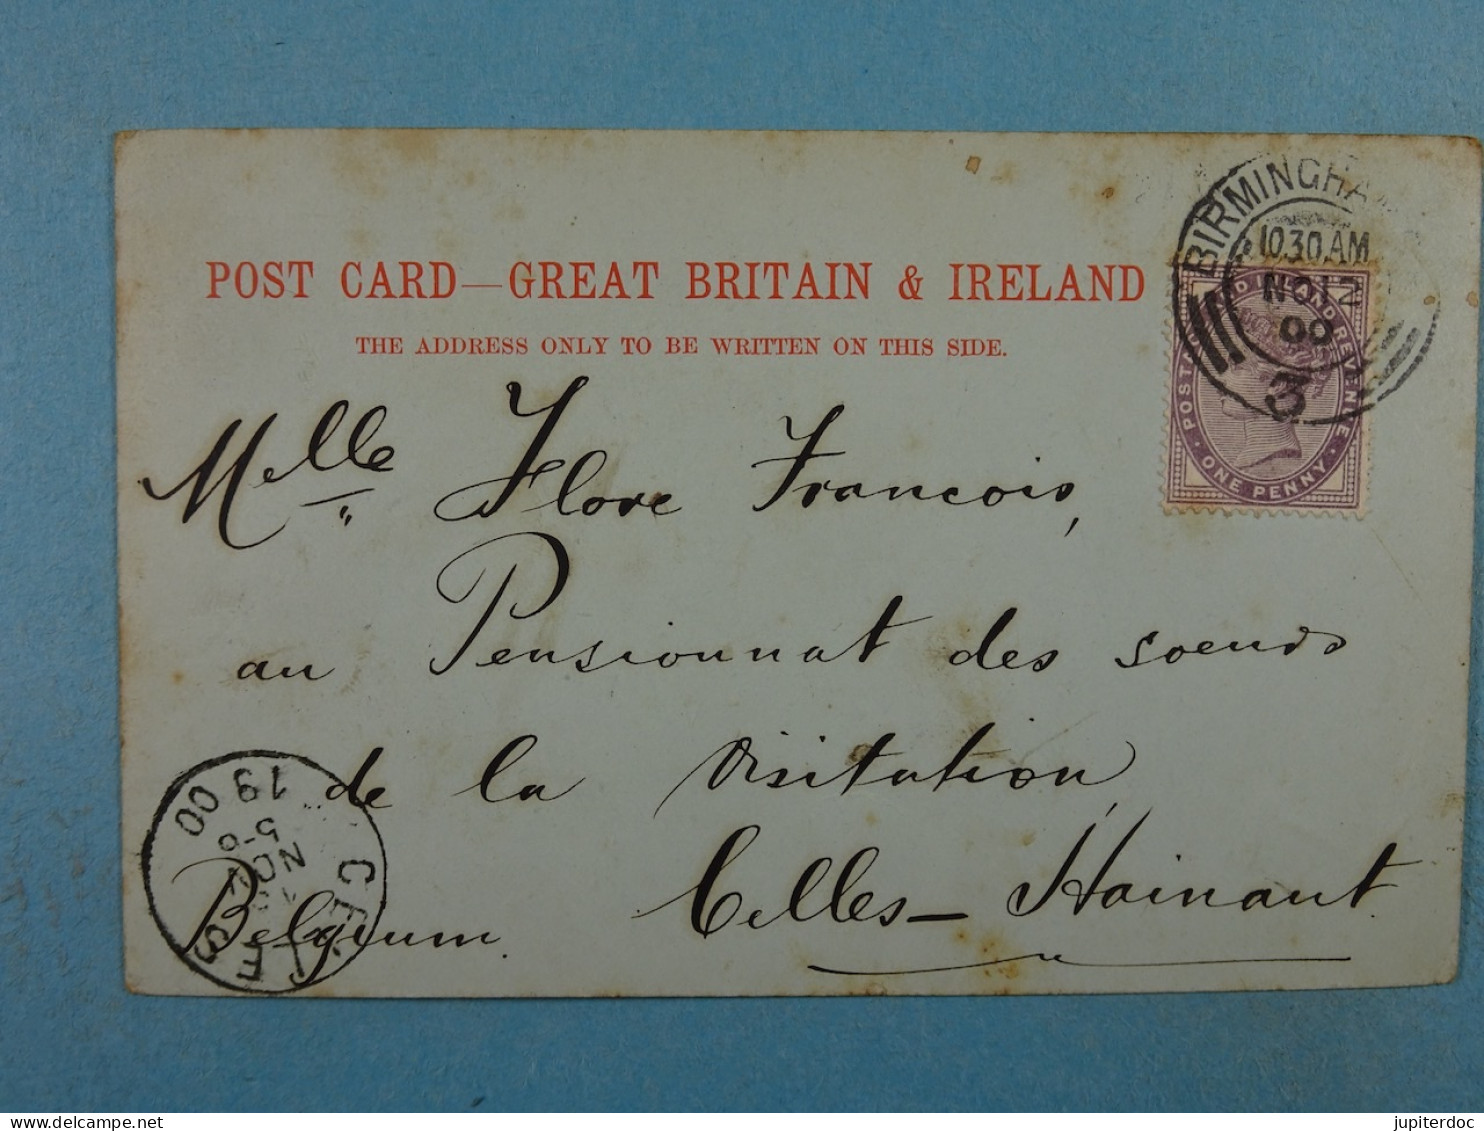 POST CARD—GREAT BRITAIN & IRELAND
THE ADDRESS ONLY TO BE WRITTEN ON THIS SIDE.
BIRMINGHAM
10.30 AM
NO 12
00
3
POSTAGE AND INLAND REVENUE
ONE PENNY
Melle Flore Francois,
au Pensionnat des soeurs
de la Visitation,
Celles - Hainaut
Belgium.
CELLES
5-6
19 00
jupiterdoc